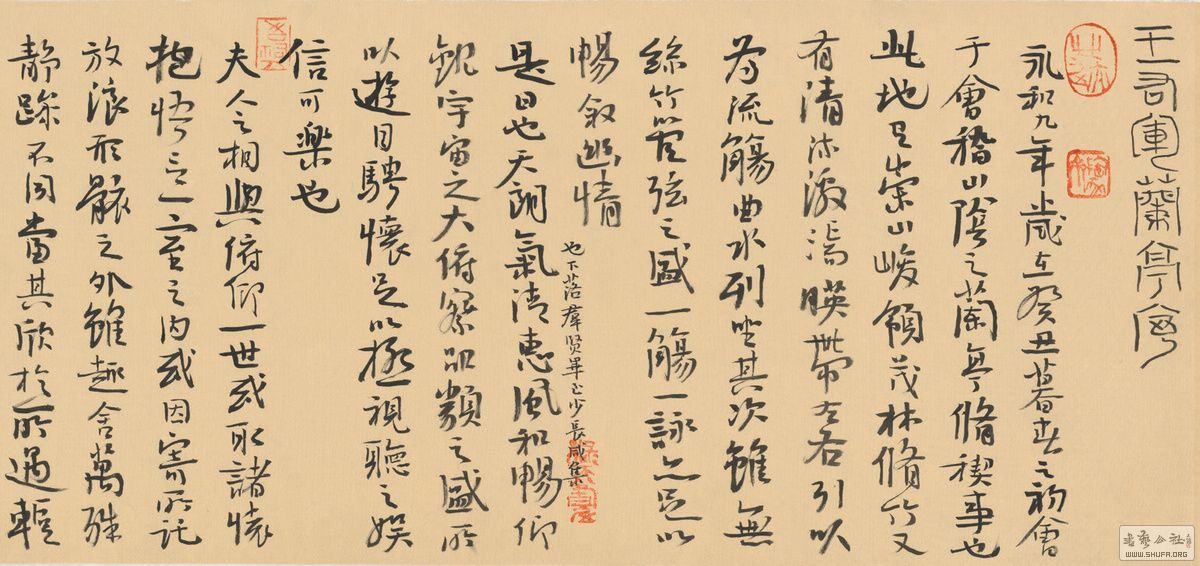 王右軍蘭亭序
永和九年歲在癸丑暮春之初會
于會稽山陰之蘭亭脩禊事也
此地有崇山峻領茂林脩竹又
有清流激湍暎帶左右引以
為流觴曲水列坐其次雖無
絲竹管弦之盛一觴一詠亦足以
暢敘幽情
也下落羣賢畢至少長咸集
是日也天朗氣清惠風和暢仰
觀宇宙之大俯察品類之盛所
以遊目騁懷足以極視聽之娛
信可樂也
夫人之相與俯仰一世或取諸懷
抱悟言一室之內或因寄所託
放浪形骸之外雖趣舍萬殊
靜躁不同當其欣於所遇輒
公社
WWW.SHUFA.ORG